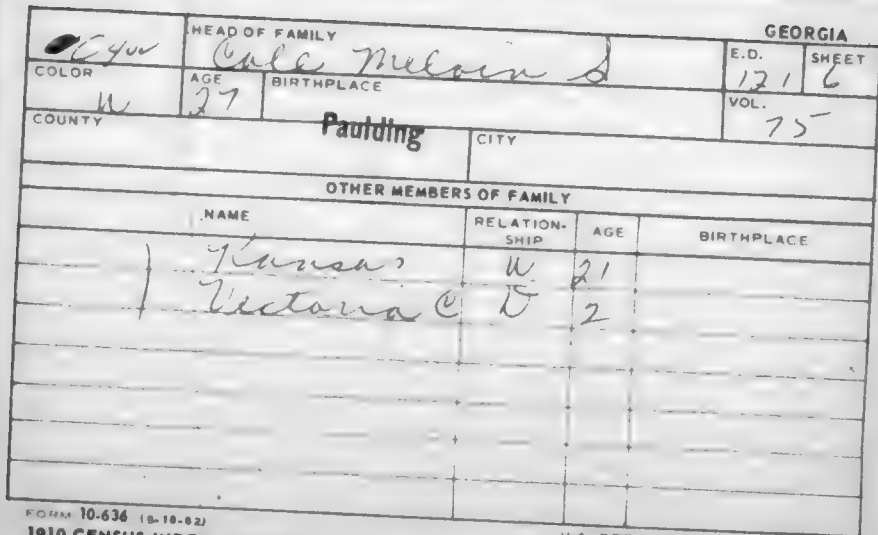 HEAD OF FAMILY
GEORGIA
Cole Melvin S
E.D. 121
SHEET 6
COLOR W
AGE 27
BIRTHPLACE
VOL. 75
COUNTY Paulding
CITY
OTHER MEMBERS OF FAMILY
NAME RELATION-SHIP AGE BIRTHPLACE
Kansas W 21
Victoria C D 2
FORM 10-636
1910 CENSUS